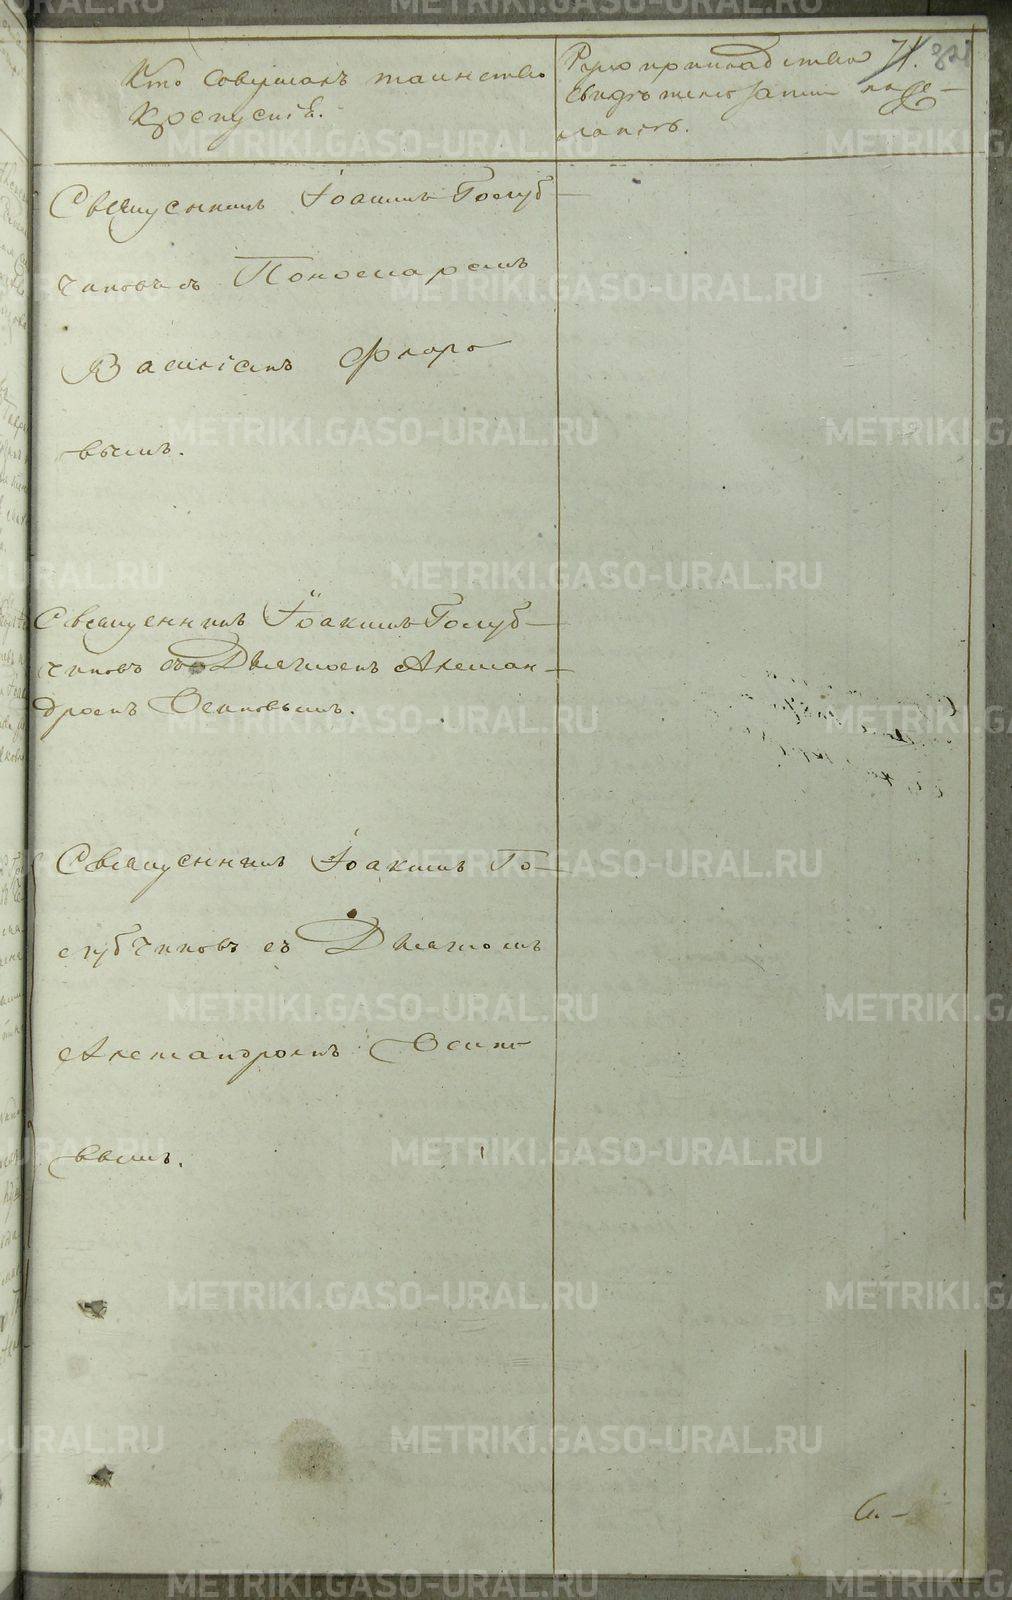 Кто совершалъ таинство
Крещенія.
Рукоприкладство
свидѣтелей записи по же-
ланію.
71.
Священникъ Іоакимъ Голуб-
чиковъ съ Пономаремъ
Василіемъ Флоро
вымъ.
Священникъ Іоакимъ Голуб-
чиковъ съ Дьячкомъ Алексан-
дромъ Осиповымъ.
Священникъ Іоакимъ Го-
лубчиковъ съ Дьячкомъ
Александромъ Осипо
вымъ.
METRIKI.GASO-URAL.RU